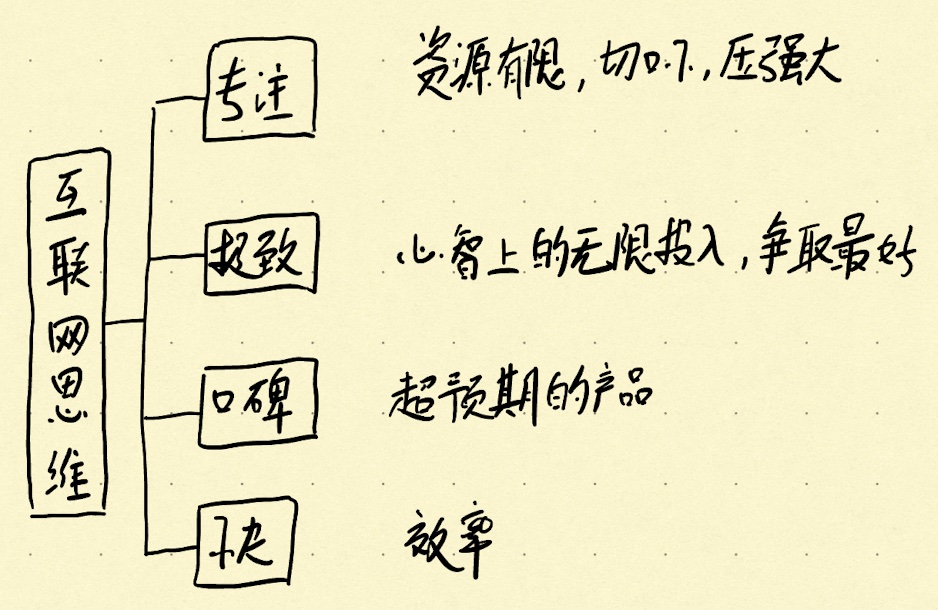 互联网思维
专注
资源有限,切口小,压强大
极致
心智上的无限投入,争取最好
口碑
超预期的产品
快
效率